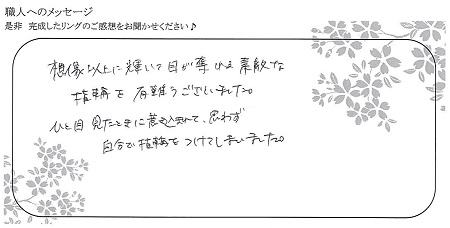 職人へのメッセージ
是非 完成したリングのご感想をお聞かせください♪
想像以上に輝いて目が奪われる素敵な
指輪を有難うございました。
ひと目見たときに惹き込まれて、思わず
自分で指輪をつけてしまいました。